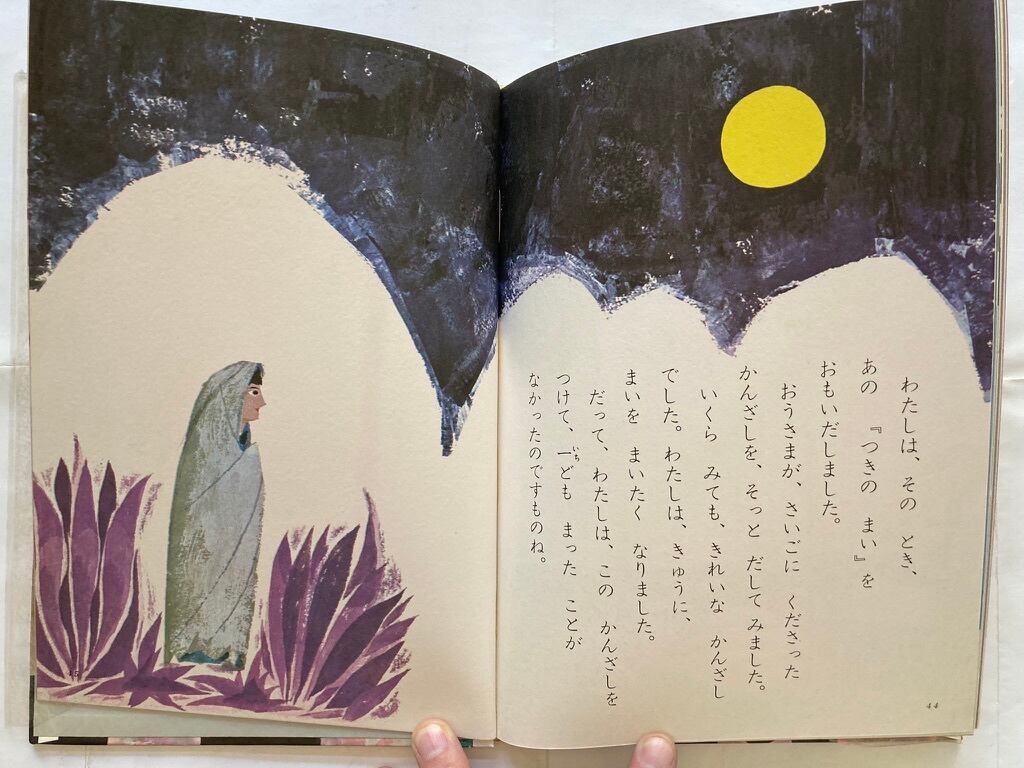 わたしは、その とき、
あの 『つきの まい』を
おもいだしました。
おうさまが、さいごに くださった
かんざしを、そっと だして みました。
いくら みても、きれいな かんざし
でした。わたしは、きゅうに、
まいを まいたく なりました。
だって、わたしは、この かんざしを
つけて、一ども まった ことが
いち
なかったのですものね。
44
45